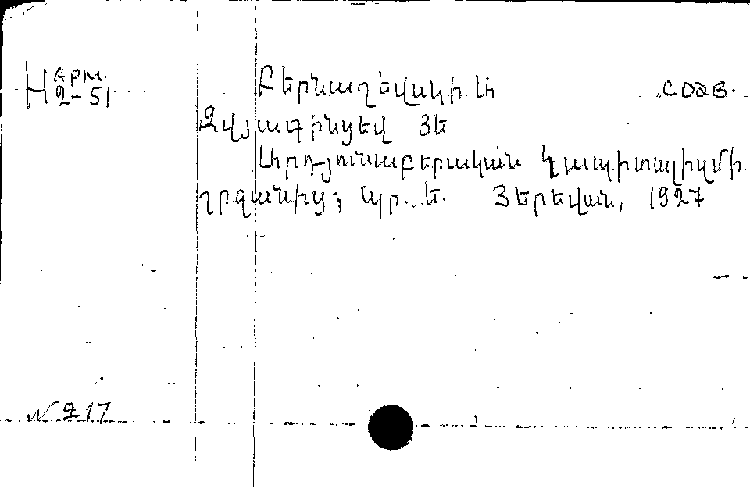 Н Арм. 2-51
Բերնադեվսկի Ի СОДВ.
Զվյագինցեվ Յե
Արդյունաբերական կապիտալիզմի
շրջանից, պր. Ե. Յերեվան, 1927
№ 217